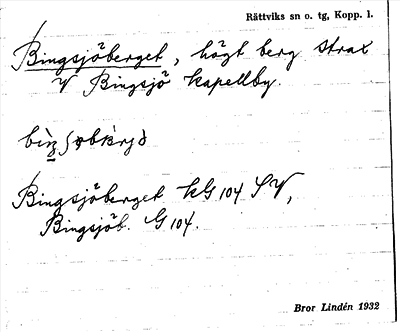 Rättviks sn o. tg, Kopp. l.
Bingsjöberget, högt berg strax
V Bingsjö kapellby.
Bingsjöberget kG 104 SV,
Bingsjöb. G 104.
Bror Lindén 1932